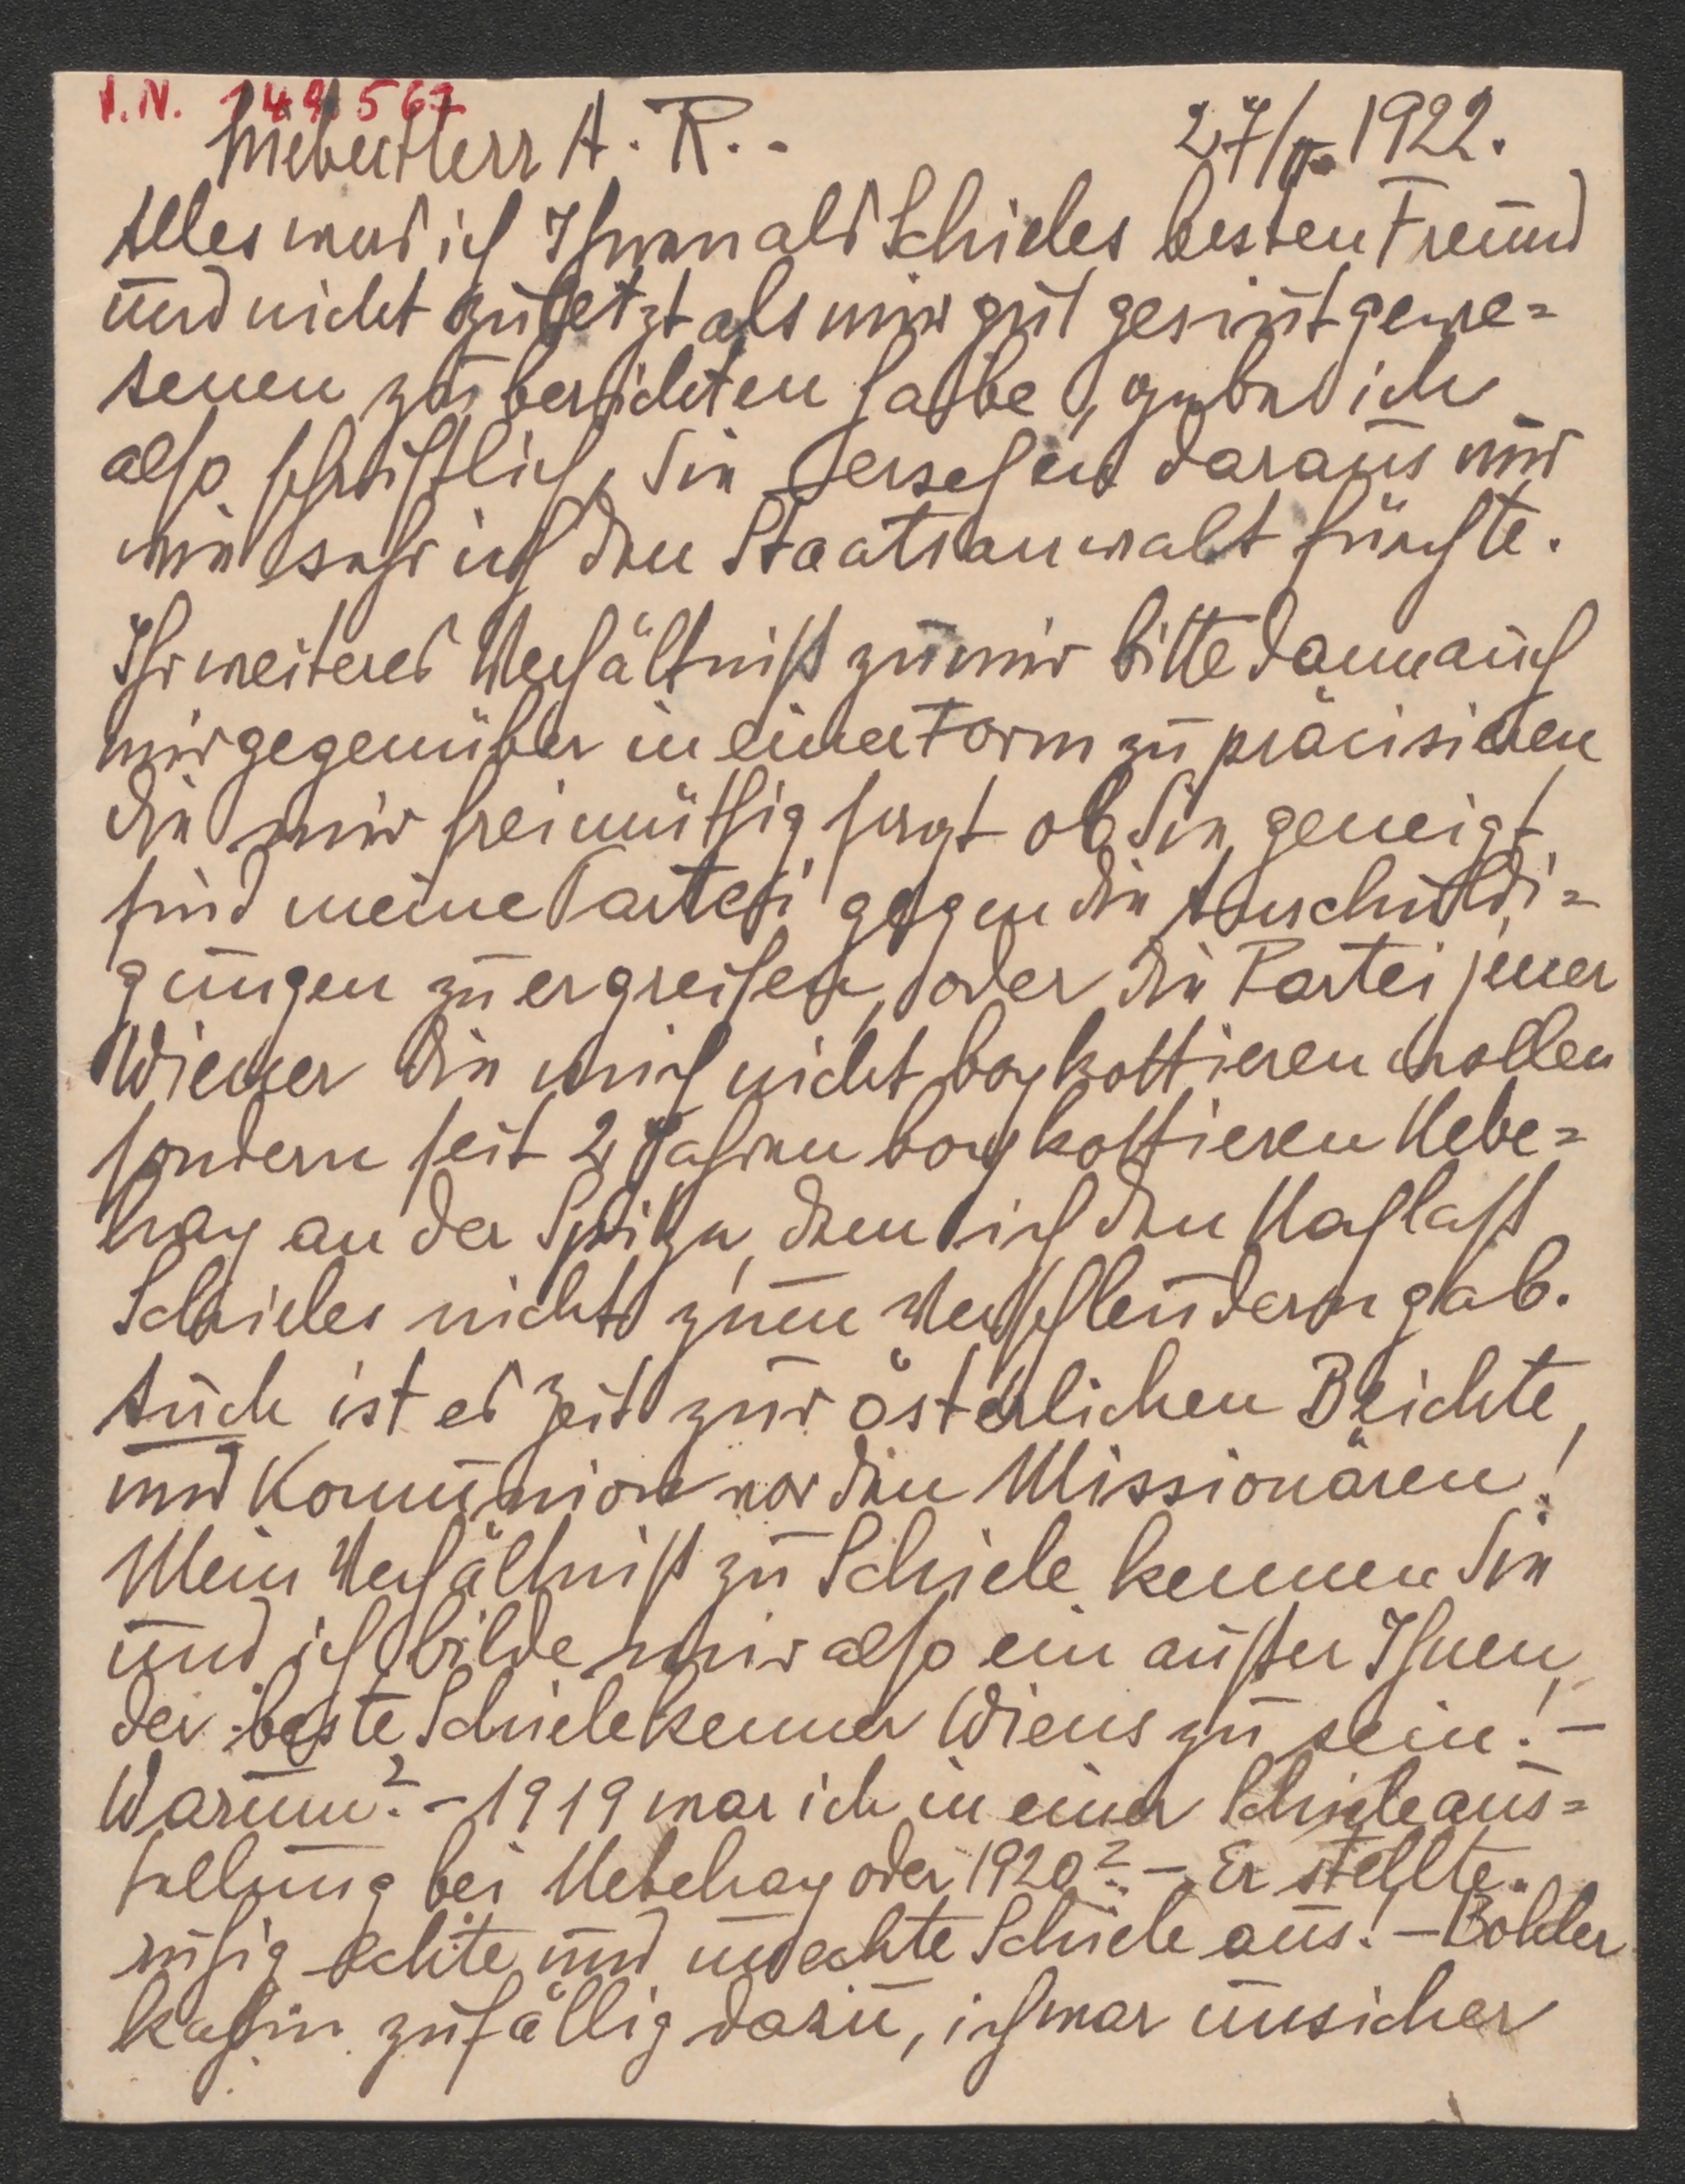 I.N. 149567
Lieber Herr A. R..- 27/II. 1922.
Alles was ich Ihnen als Schieles besten Freund
und nicht zuletzt als mir gut gesint gewe=
senen zu berichten habe, gebe ich
also schriftlich, Sie ersehen daraus nur
wie sehr ich den Staatsanwalt fürchte.
Ihr weiteres Verhältniß zu mir bitte dann auch
mir gegenüber in einer Form zu präcisieren
die mir freimüthig sagt ob Sie geneigt
sind meine Partei gegen die Anschuldi=
gungen zu ergreifen, oder die Partei jener
Wiener die mich nicht boykottieren wollen
sondern seit 2 Jahren boykottieren Nebe=
hay an der Spitze, dem ich den Nachlaß
Schieles nicht zum Verschleudern gab.
Auch ist es Zeit zur österlichen Beichte,
und Komunion vor den Missionären!
Mein Verhältniß zu Schiele kennen Sie
und ich bilde mir also ein außer Ihnen,
der beste Schielekenner Wiens zu sein! –
Warum? – 1919 war ich in einer Schieleaus=
stellung bei Nebehay oder 1920? – Er stellte
ruhig echte und unechte Schiele aus! –
kam zufällig dazu, ich war unsicher